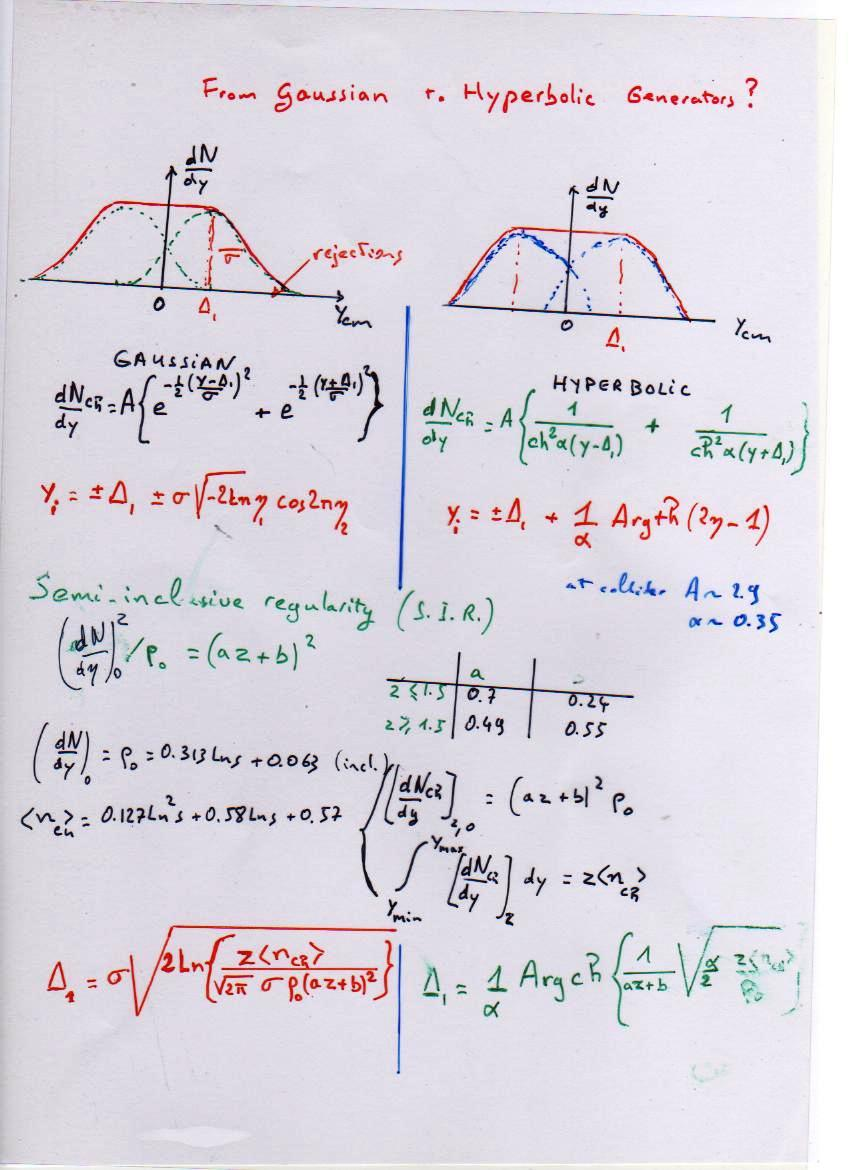 From Gaussian to Hyperbolic Generators?
dN/dy
dN/dy
σ
rejections
0
Δ₁
Ycm
0
Δ₁
Ycm
GAUSSIAN
dNch/dy = A{e^{-1/2((y-Δ₁)/σ)²} + e^{-1/2((y+Δ₁)/σ)²}}
yᵢ = ±Δ₁ ± σ√(-2Ln η₁) cos2πη₂
HYPERBOLIC
dNch/dy = A{1/(ch²α(y-Δ₁)) + 1/(ch²α(y+Δ₁))}
yᵢ = ±Δ₁ + 1/α Argth(2η-1)
at collider A~2.9
α~0.35
Semi-inclusive regularity (S.I.R.)
(dN/dy)₀²/ρ₀ = (az+b)²
a
z≤1.5 0.7 0.24
z≥1.5 0.49 0.55
(dN/dy)₀ = ρ₀ = 0.313Lns + 0.063 (incl.)
<n_ch> = 0.127Ln²s + 0.58Lns + 0.57
[dNch/dy]_{z,0} = (az+b)² ρ₀
∫_{Ymin}^{Ymax} [dNch/dy]_z dy = z<n_ch>
Δ₁ = σ√(2Ln{z<n_ch>/(√2π σ ρ₀(az+b)²)})
Δ₁ = 1/α Argch{1/(az+b) √(α/2 z<n_ch>/ρ₀)}